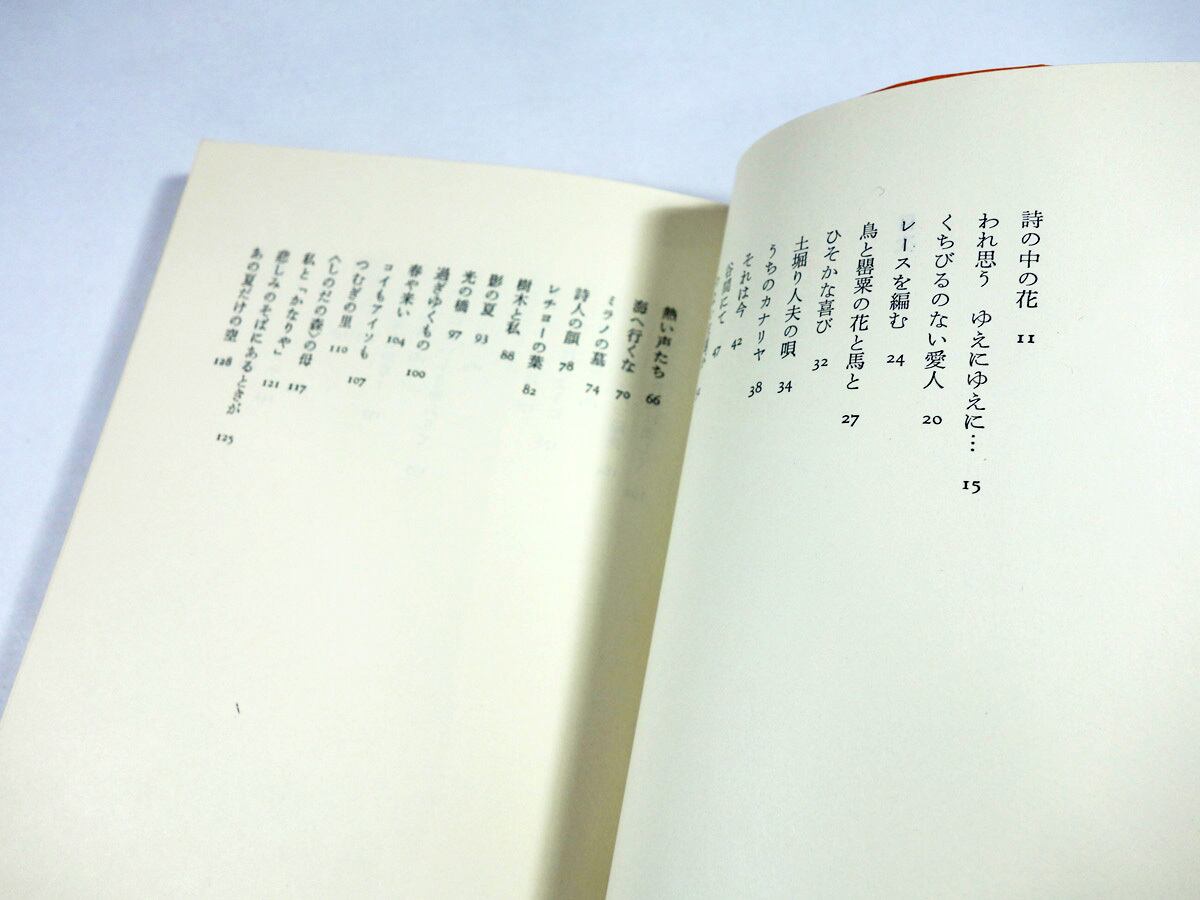 詩の中の花 11
われ思う ゆえにゆえに… 15
くちびるのない愛人 20
レースを編む 24
鳥と罌粟の花と馬と 27
ひそかな喜び 32
土堀り人夫の唄 34
うちのカナリヤ 38
それは今 42
谷間にて 47
熱い声たち 66
海へ行くな 70
ミラノの墓 74
詩人の顔 78
レチョーの葉 82
樹木と私 88
影の夏 93
光の橋 97
過ぎゆくもの 100
春や来い 104
コイもアイツも 107
つむぎの里 110
〈しのだの森〉の母 117
私と「かなりや」 121
悲しみのそばにあるときが 125
あの夏だけの空 128